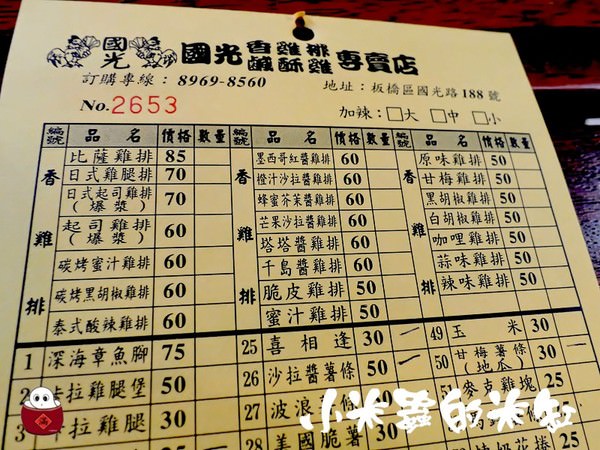 國光
國光 香雞排 鹹酥雞 專賣店
訂購專線：8969-8560 地址：板橋區國光路188號
No.2653 加辣：□大 □中 □小
編號 品名 價格 數量 編號 品名 價格 數量 編號 品名 價格 數量
香雞排 香雞排 香雞排
比薩雞排 85 墨西哥紅醬雞排 60 原味雞排 50
日式雞腿排 70 橙汁沙拉醬雞排 60 甘梅雞排 50
日式起司雞排(爆漿) 70 蜂蜜芥茉醬雞排 60 黑胡椒雞排 50
起司雞排(爆漿) 60 芒果沙拉醬雞排 60 白胡椒雞排 50
塔塔醬雞排 60 咖哩雞排 50
碳烤蜜汁雞排 60 千島醬雞排 60 蒜味雞排 50
碳烤黑胡椒雞排 60 脆皮雞排 50 辣味雞排 50
泰式酸辣雞排 60 蜜汁雞排 50
1 深海章魚腳 75 25 喜相逢 30 49 玉米 30
2 卡拉雞腿堡 50 26 沙拉醬薯條 50 50 甘梅薯條(地瓜) 30
3 卡拉雞腿 30 27 波浪薯條 30 51 麥克雞塊 25
28 美國脆薯 25
小米蟲的米缸